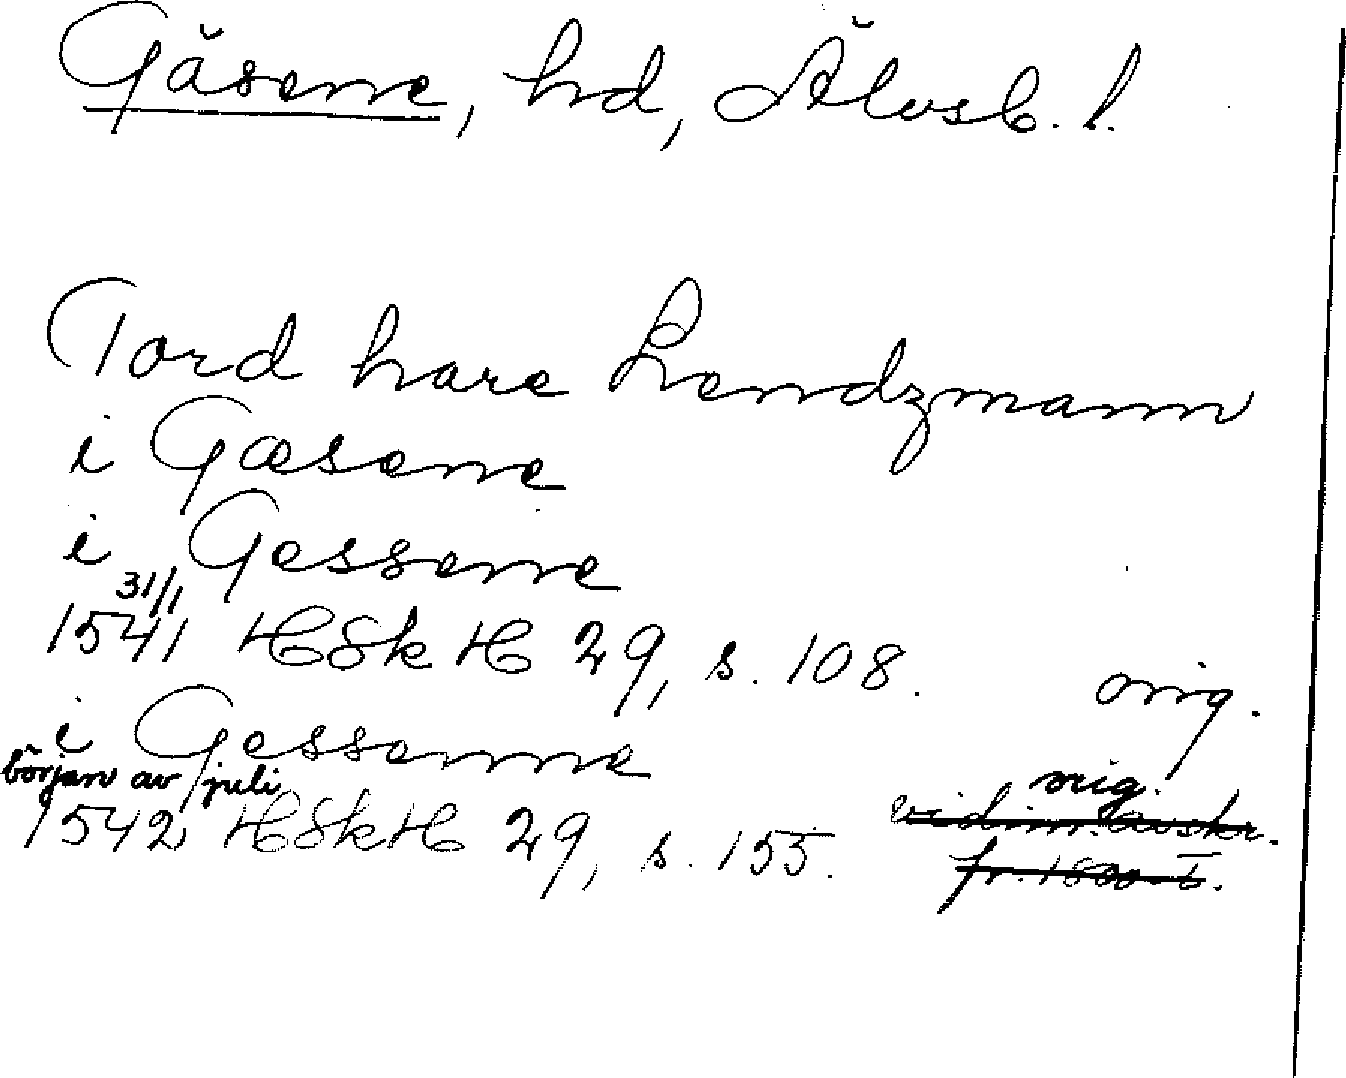 Gäsene, hd, Älvsb. l.
Tord hare Lendzmann
i Gæsene
i Gessene
31/1
1541 HSkH 29, s. 108. orig.
i Gessenne
början av juli orig.
1542 HSkH 29, s. 155. vidim. avskr.
fr. 1800-t.